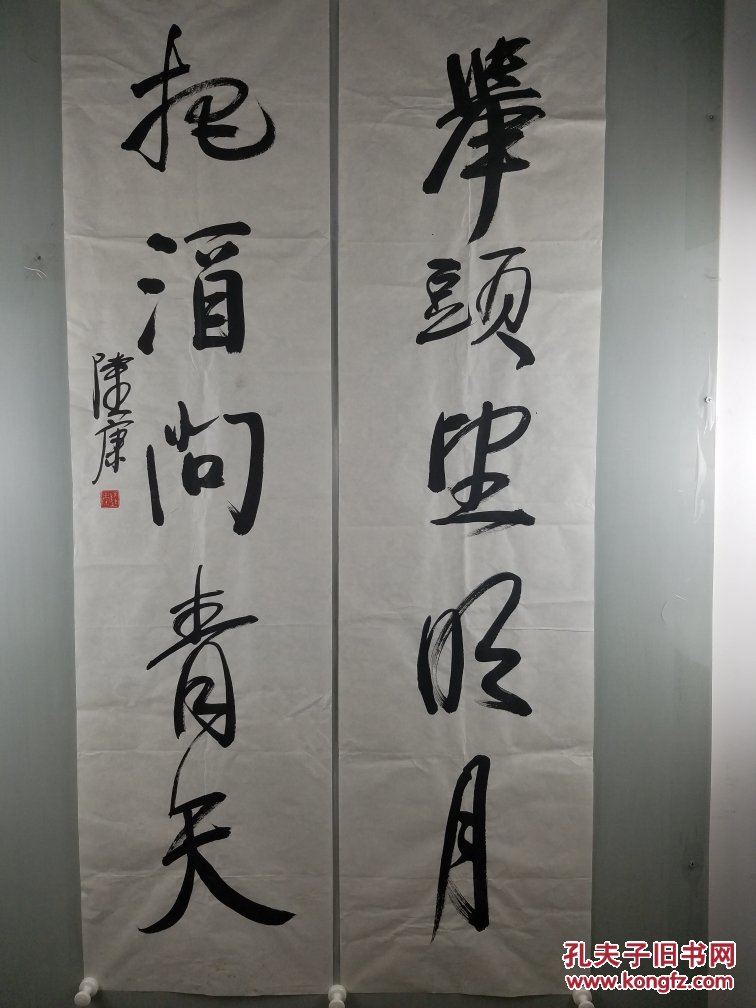 舉頭望明月
把酒問青天
陸康
孔夫子旧书网
www.kongfz.com